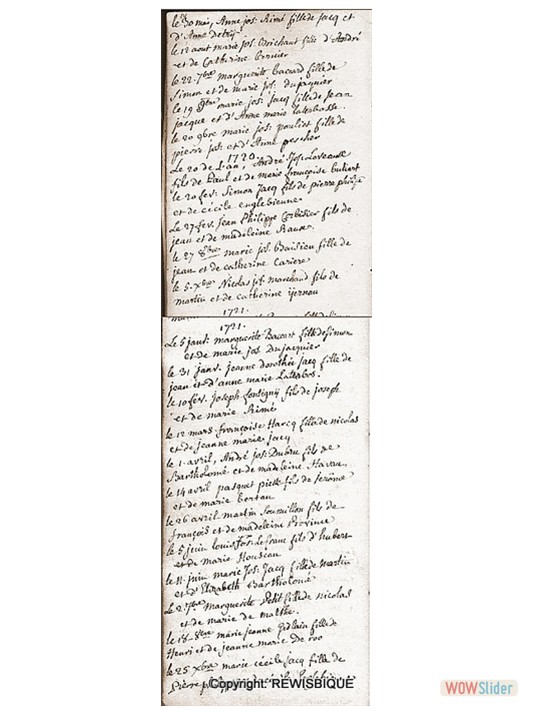 le 30 mai, Anne jos: Rimé fille de Jacq et
d'Anne detry
le 12 aout marie jos. Brichant fille d'André
et de Catherine
le 22. 7bre marguerite bacard fille de
Simon et de marie jos: dujaquier
le 19 marie jos: Jacq fille de Jean
jacque et d'Anne marie
le 20 9bre marie jos: pouliet fille de
pierre jos: et d'Anne pescher
1720.
Le 20 de l'an, André Jos.
fils de Paul et de marie françoise
le 20 fev. Simon Jacq fils de pierre
et de cécile englebienne
Le 27 fev. Jean Philippe Corbisier fils de
jean et de madeleine
le 27 marie jos: Baisieu fille de
jean et de catherine Cariere
le 5. Xbre Nicolas jos: marchand fils de
martin et de catherine
1721.
Le 5 janv: marguerite Bacart fille de Simon
et de marie jos Dujacquier
le 31 janv. jeanne dorothée Jacq fille de
jean et d'anne marie
le 10 fev. joseph fontigny fils de joseph
et de marie Rimé
le 12 mars françoise Harcq fille de nicolas
et de jeanne marie jacq
le 1. avril, André jos: Dubru fils de
Bartholomé et de madeleine
le 14 avril pasquet piette fils de Jerôme
et de marie bertau
le 26 avril martin fils de
françois et de madeleine Province
le 5 juin louis Jos: Lefranc fils d'hubert
et de marie Houseau
le 11. juin marie Jos: Jacq fille de Martin
et d'Elizabeth Bartholomé
Le 2 7bre Marguerite Petit fille de nicolas
et de marie de malthe.
le 18 8bre marie jeanne fille de
Henri et de jeanne marie De roo
le 25 Xbre marie cécile jacq fille de
Pierre
Copyright: REWISBIQUE
WOWSlider